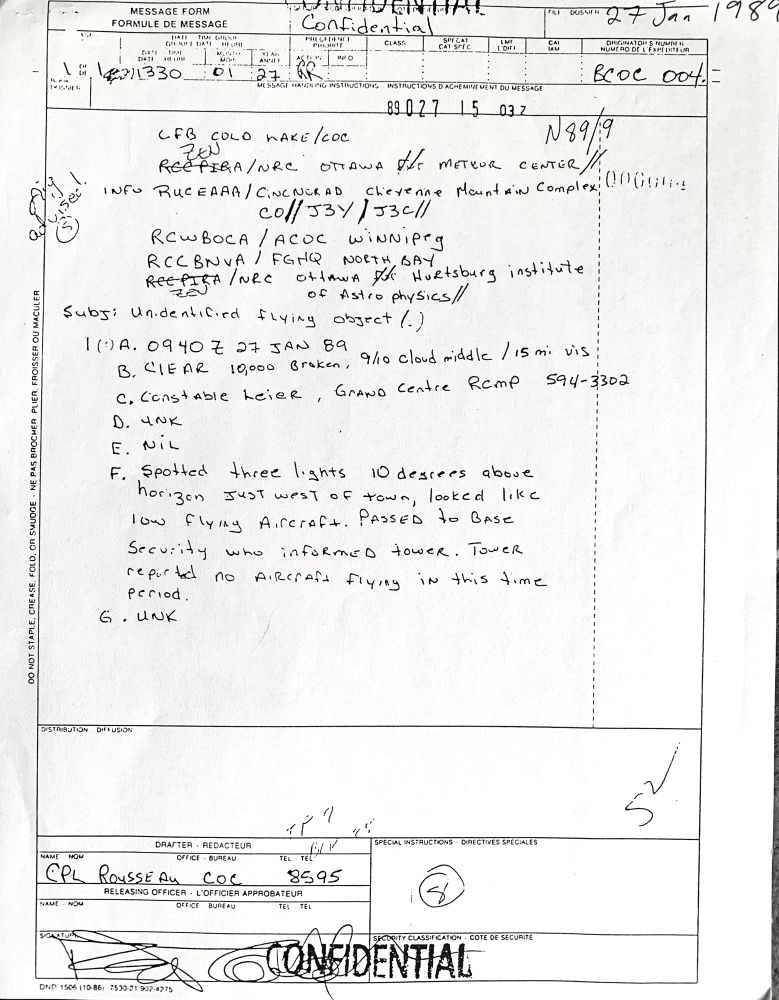 MESSAGE FORM
FORMULE DE MESSAGE
CONFIDENTIAL
Confidential
FILE DOSSIER 27 Jan 1989
PRECEDENCE
PRIORITÉ
CLASS
SPECAT
CAT SPÉC
LMF
CAI
IAM
ORIGINATOR'S NUMBER
NUMÉRO DE L'EXPÉDITEUR
ACTION INFO
1 1 271330 01 27 RR BCOC 004
MESSAGE HANDLING INSTRUCTIONS INSTRUCTIONS D'ACHEMINEMENT DU MESSAGE
89 027 15 03z
CFB COLD LAKE/COC N89/9
ZEN
RCEPIRA/NRC OTTAWA METEOR CENTER//
INFO RUCEAAA/CINCNORAD Cheyenne Mountain Complex
CO//J3Y/J3C//
RCWBOCA/ACOC WINNIPEG
RCCBNVA/FGHQ NORTH BAY
RCEPIRA/NRC OTTAWA Hurtsburg institute
ZEN of Astro physics//
Subj: Unidentified flying object (.)
1(.) A. 0940Z 27 JAN 89
B. CLEAR 10,000 Broken, 9/10 cloud middle / 15 mi. vis
C. Constable Leier, GRAND Centre RCMP 594-3302
D. UNK
E. NIL
F. Spotted three lights 10 degrees above
horizon JUST west OF town, looked like
low flying Aircraft. PASSED to BASE
Security who informed tower. Tower
reported no AIRCRAFT flying in this time
period.
G. UNK
DO NOT STAPLE, CREASE, FOLD, OR SMUDGE - NE PAS BROCHER PLIER, FROISSER OU MACULER
DISTRIBUTION DIFFUSION
5
DRAFTER - RÉDACTEUR
SPECIAL INSTRUCTIONS - DIRECTIVES SPÉCIALES
NAME NOM OFFICE - BUREAU TEL - TÉL
CPL ROUSSEAU COC 8595
8
RELEASING OFFICER - L'OFFICIER APPROBATEUR
NAME - NOM OFFICE BUREAU TEL TÉL
SIGNATURE
SECURITY CLASSIFICATION - COTE DE SÉCURITÉ
CONFIDENTIAL
DND 1506 (10-86) 7530-21-902-4275